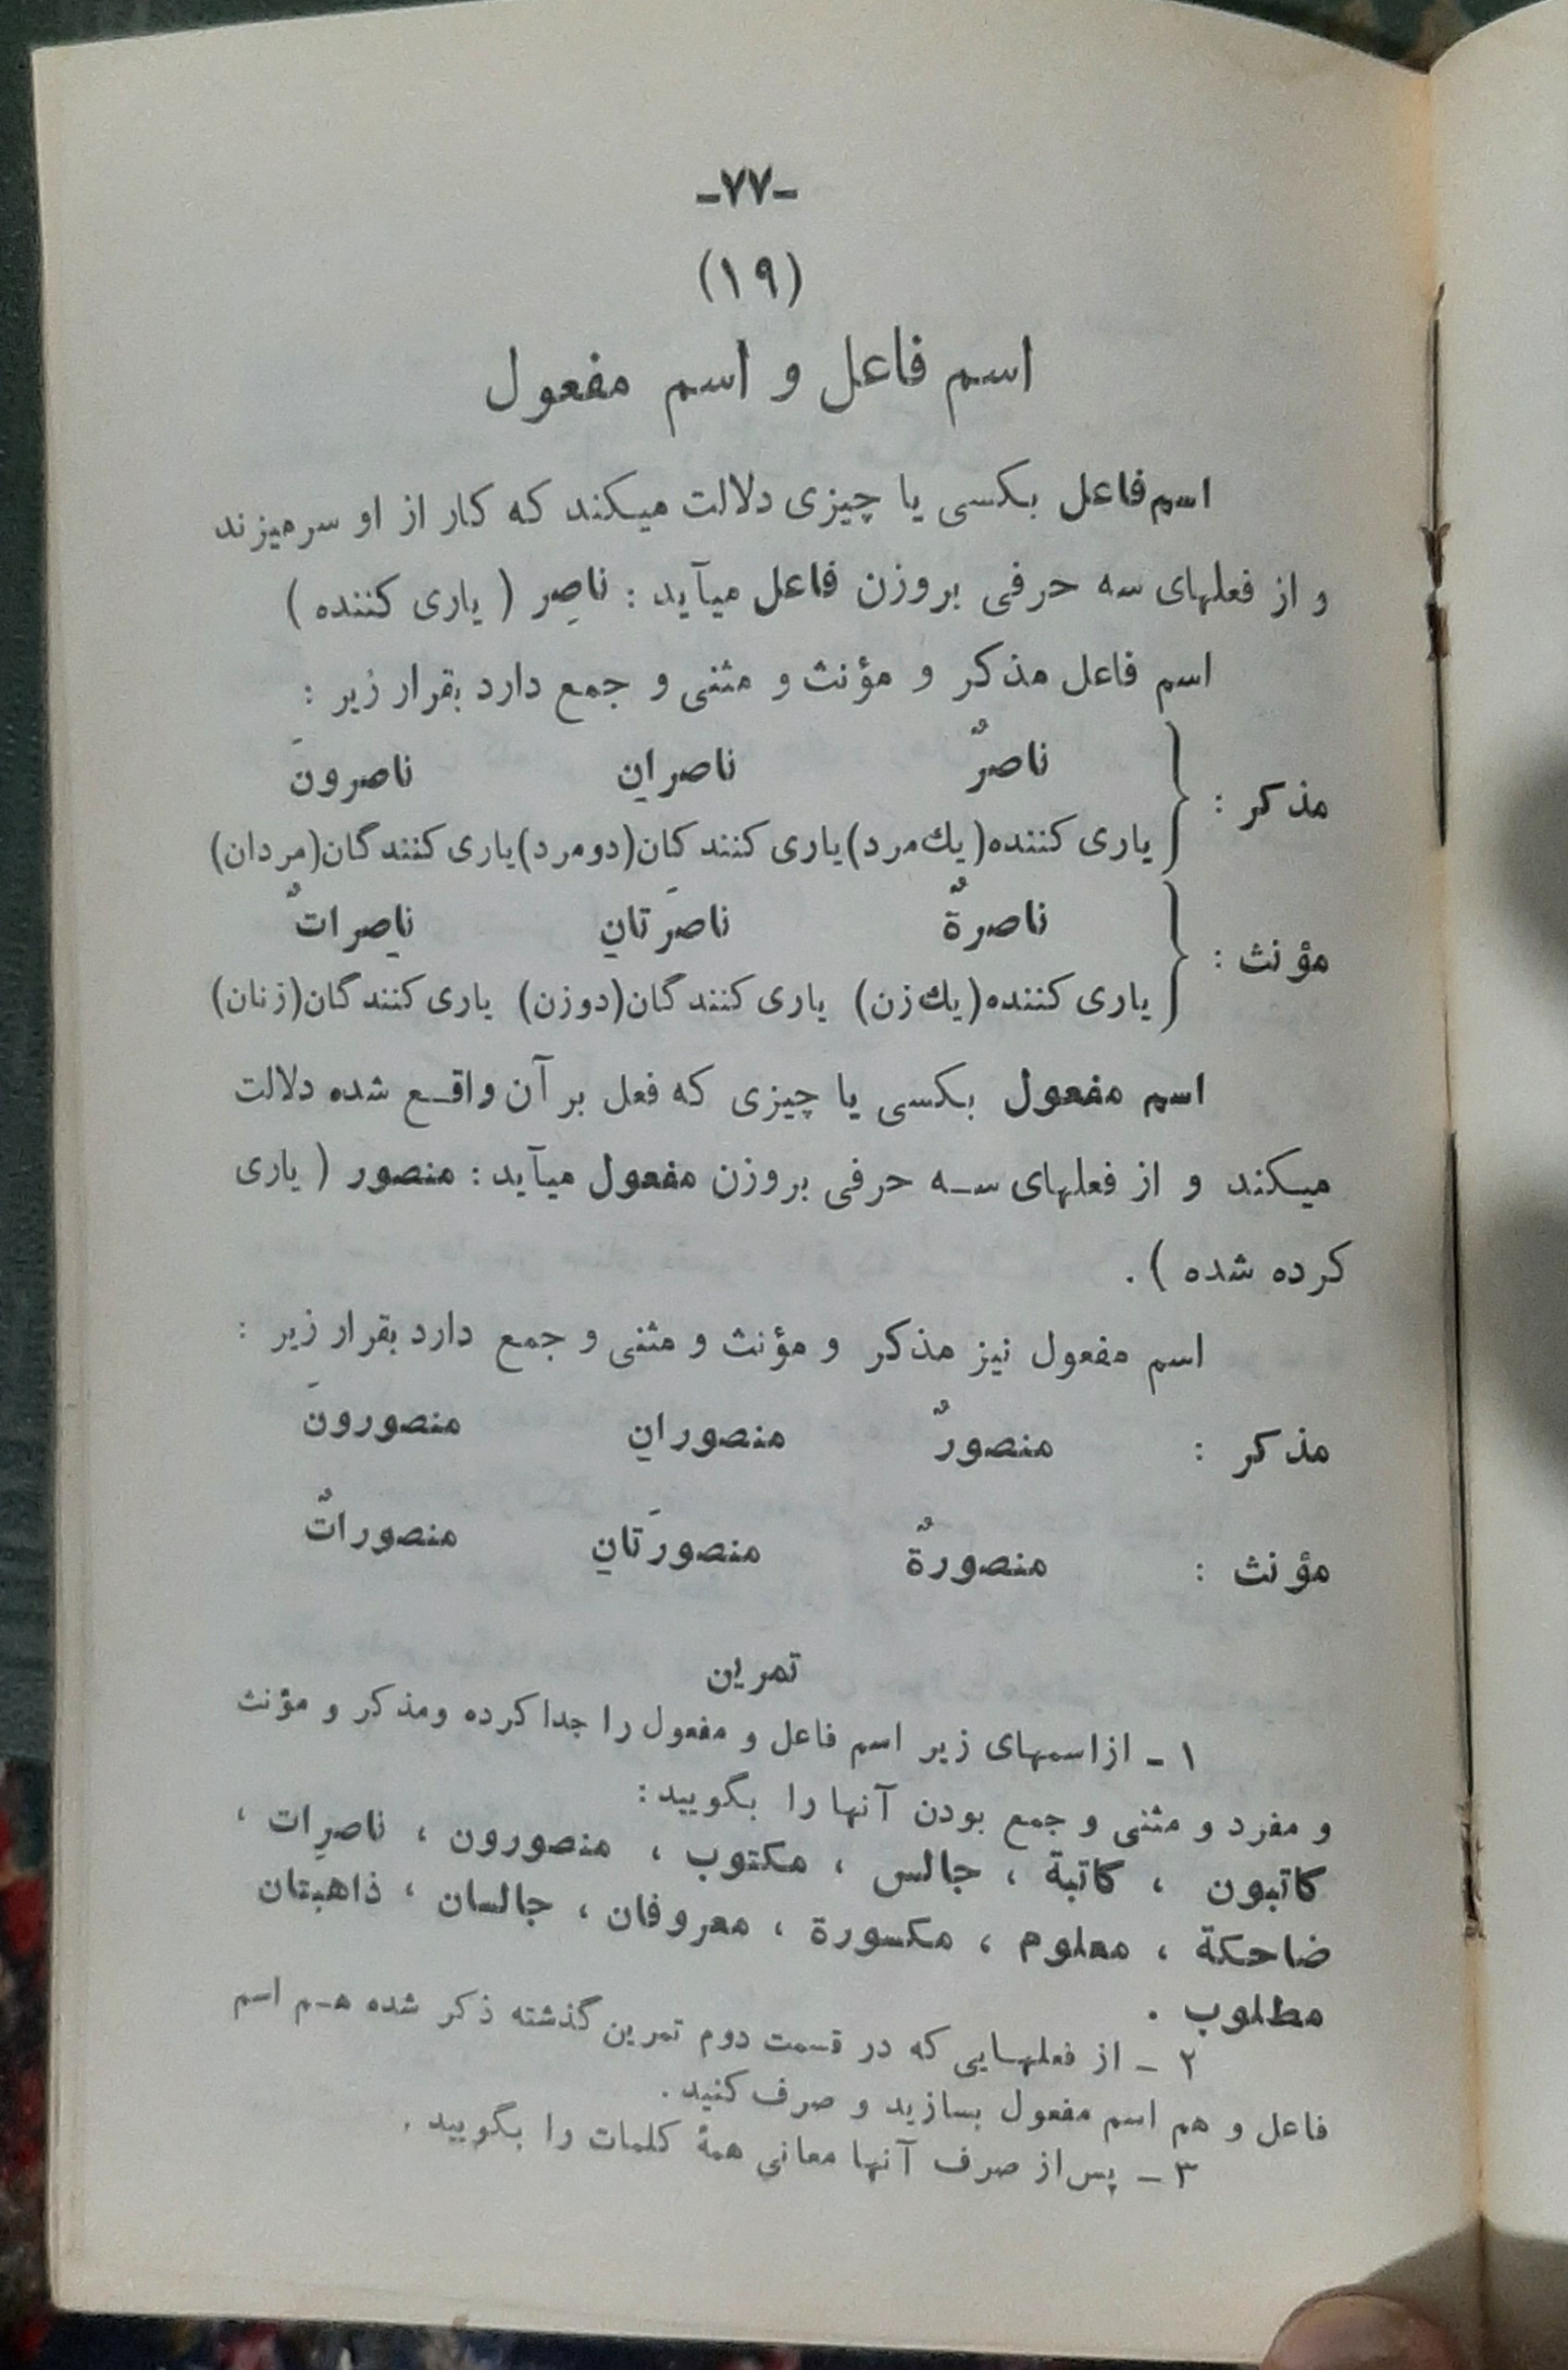 -۷۷-
(۱۹)
اسم فاعل و اسم مفعول
اسم فاعل بکسی یا چیزی دلالت میکند که کار از او سرمیزند
و از فعلهای سه حرفی بروزن فاعل میآید : ناصِر ( یاری کننده )
اسم فاعل مذکر و مؤنث و مثنی و جمع دارد بقرار زیر :
مذکر : ناصرٌ ناصرانِ ناصرونَ
یاری کننده(یك‌مرد) یاری کنندکان(دومرد) یاری کنندگان(مردان)
مؤنث : ناصرةٌ ناصرَتانِ ناصِراتٌ
یاری کننده(یك‌زن) یاری کنندگان(دوزن) یاری کنندگان(زنان)
اسم مفعول بکسی یا چیزی که فعل بر آن واقـع شده دلالت
میـکند و از فعلهای سـه حرفی بروزن مفعول میآید : منصور ( یاری
کرده شده ) .
اسم مفعول نیز مذکر و مؤنث و مثنی و جمع دارد بقرار زیر :
مذکر : منصورٌ منصورانِ منصورونَ
مؤنث : منصورةٌ منصورَتانِ منصوراتٌ
تمرین
۱ - ازاسمهای زیر اسم فاعل و مفعول را جدا کرده ومذکر و مؤنث
و مفرد و مثنی و جمع بودن آنها را بگویید :
کاتبون ، کاتبة ، جالس ، مکتوب ، منصورون ، ناصرِات ،
ضاحکة ، معلوم ، مکسورة ، معروفان ، جالسان ، ذاهبتان
مطلوب .
۲ - از فعلهـایی که در قسمت دوم تمرین گذشته ذکر شده هـم اسم
فاعل و هم اسم مفعول بسازید و صرف کنید .
۳ - پس از صرف آنها معانی همهٔ کلمات را بگویید .